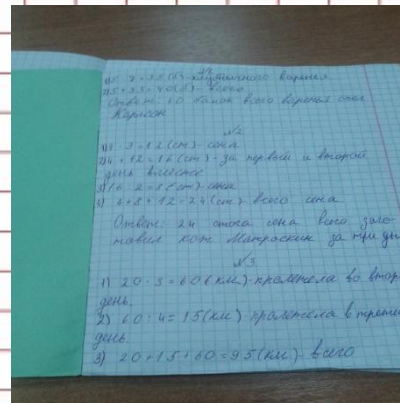 №1
1) 5 · 7 = 35 (б) - клубничного варенья
2) 5 + 35 = 40 (б) - всего
Ответ: 40 банок всего варенья съел
Карлсон
№2
1) 4 · 3 = 12 (ст) - сена
2) 4 + 12 = 16 (ст) - за первый и второй
день вместе
3) 16 : 2 = 8 (ст) - сена
4) 4 + 8 + 12 = 24 (ст) всего сена
Ответ: 24 стога сена всего заго-
товил кот Матроскин за три дн
№3
1) 20 · 3 = 60 (км) - пролетела во втор
день.
2) 60 : 4 = 15 (км) пролетела в третий
день
3) 20 + 15 + 60 = 95 (км) - всего